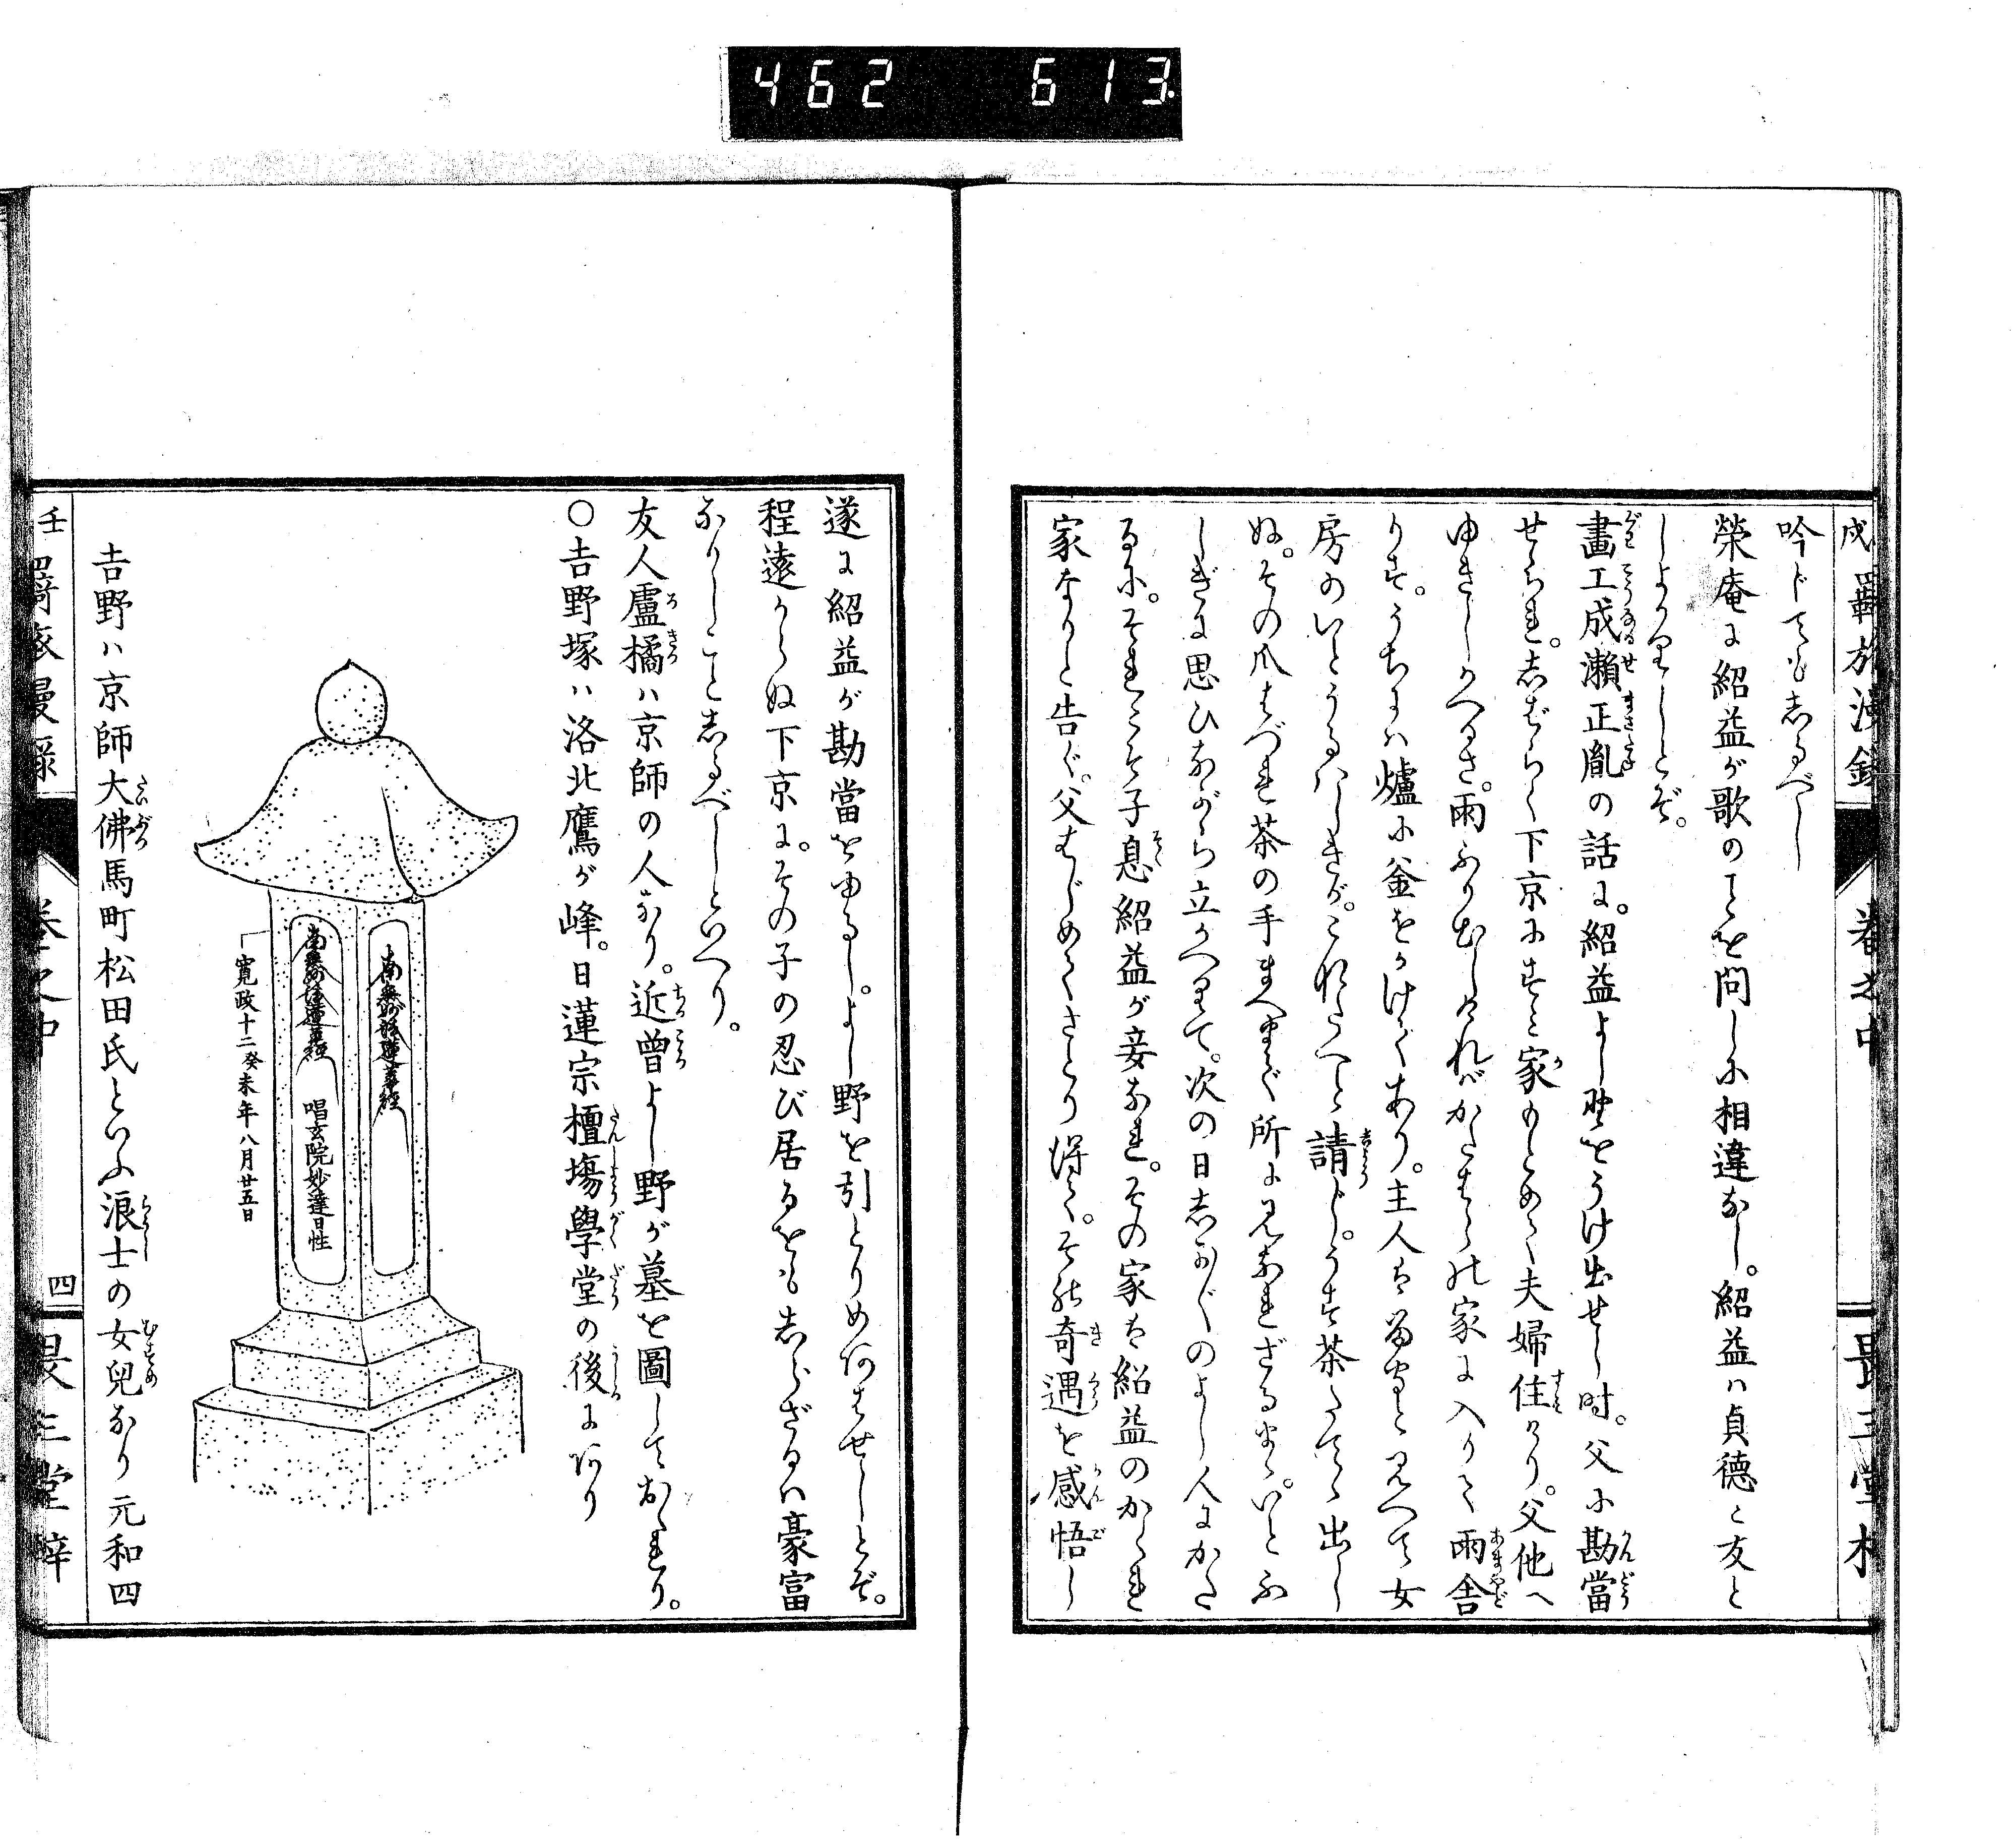 462 613
戌 羇旅漫録 巻之中 畏三堂梓
吟じてもしるべし
榮庵に紹益が歌のことを問しに相違なし。紹益ハ貞德と友と
しよかりしとぞ。
畫工成瀬正胤の話に。紹益よし野をうけ出せし時。父に勘當
せられ。しばらく下京にすこし家もとめて夫婦住けり。父他へ
ゆきしかへるさ。雨ふり出しければかたはらの家に入りて雨舎
りす。うちには爐に釜をかけてあり。主人は留守と見へて女
房のいとうるハしきが。こなたへと請じ。うす茶たてゝ出し
ぬ。その爪はづれ茶の手まへまで所に見なれざるまゝ。いとふ
しぎに思ひながら立かへりて。次の日しか〴〵のよし人にかた
るに。それこそ子息紹益が妾なれ。その家は紹益のかくれ
家なりと告ぐ。父はじめてさとり得て。その奇遇を感悟し
遂に紹益が勘當をゆるし。よし野を引とりめあはせしとぞ。
程遠からぬ下京に。その子の忍び居るをも志らざるハ豪富
なりしこと志るべしといへり。
友人盧橘ハ京師の人なり。近曽よし野が墓を圖しておくれり。
〇吉野塚ハ洛北鷹が峰。日蓮宗檀塲學堂の後にあり
南無妙法蓮華經
南無妙法蓮華經 唱玄院妙達日性
寛政十二癸未年八月廿五日
吉野ハ京師大佛馬町松田氏といふ浪士の女兒なり元和四
壬 羇旅漫録 巻之中 四 畏三堂梓